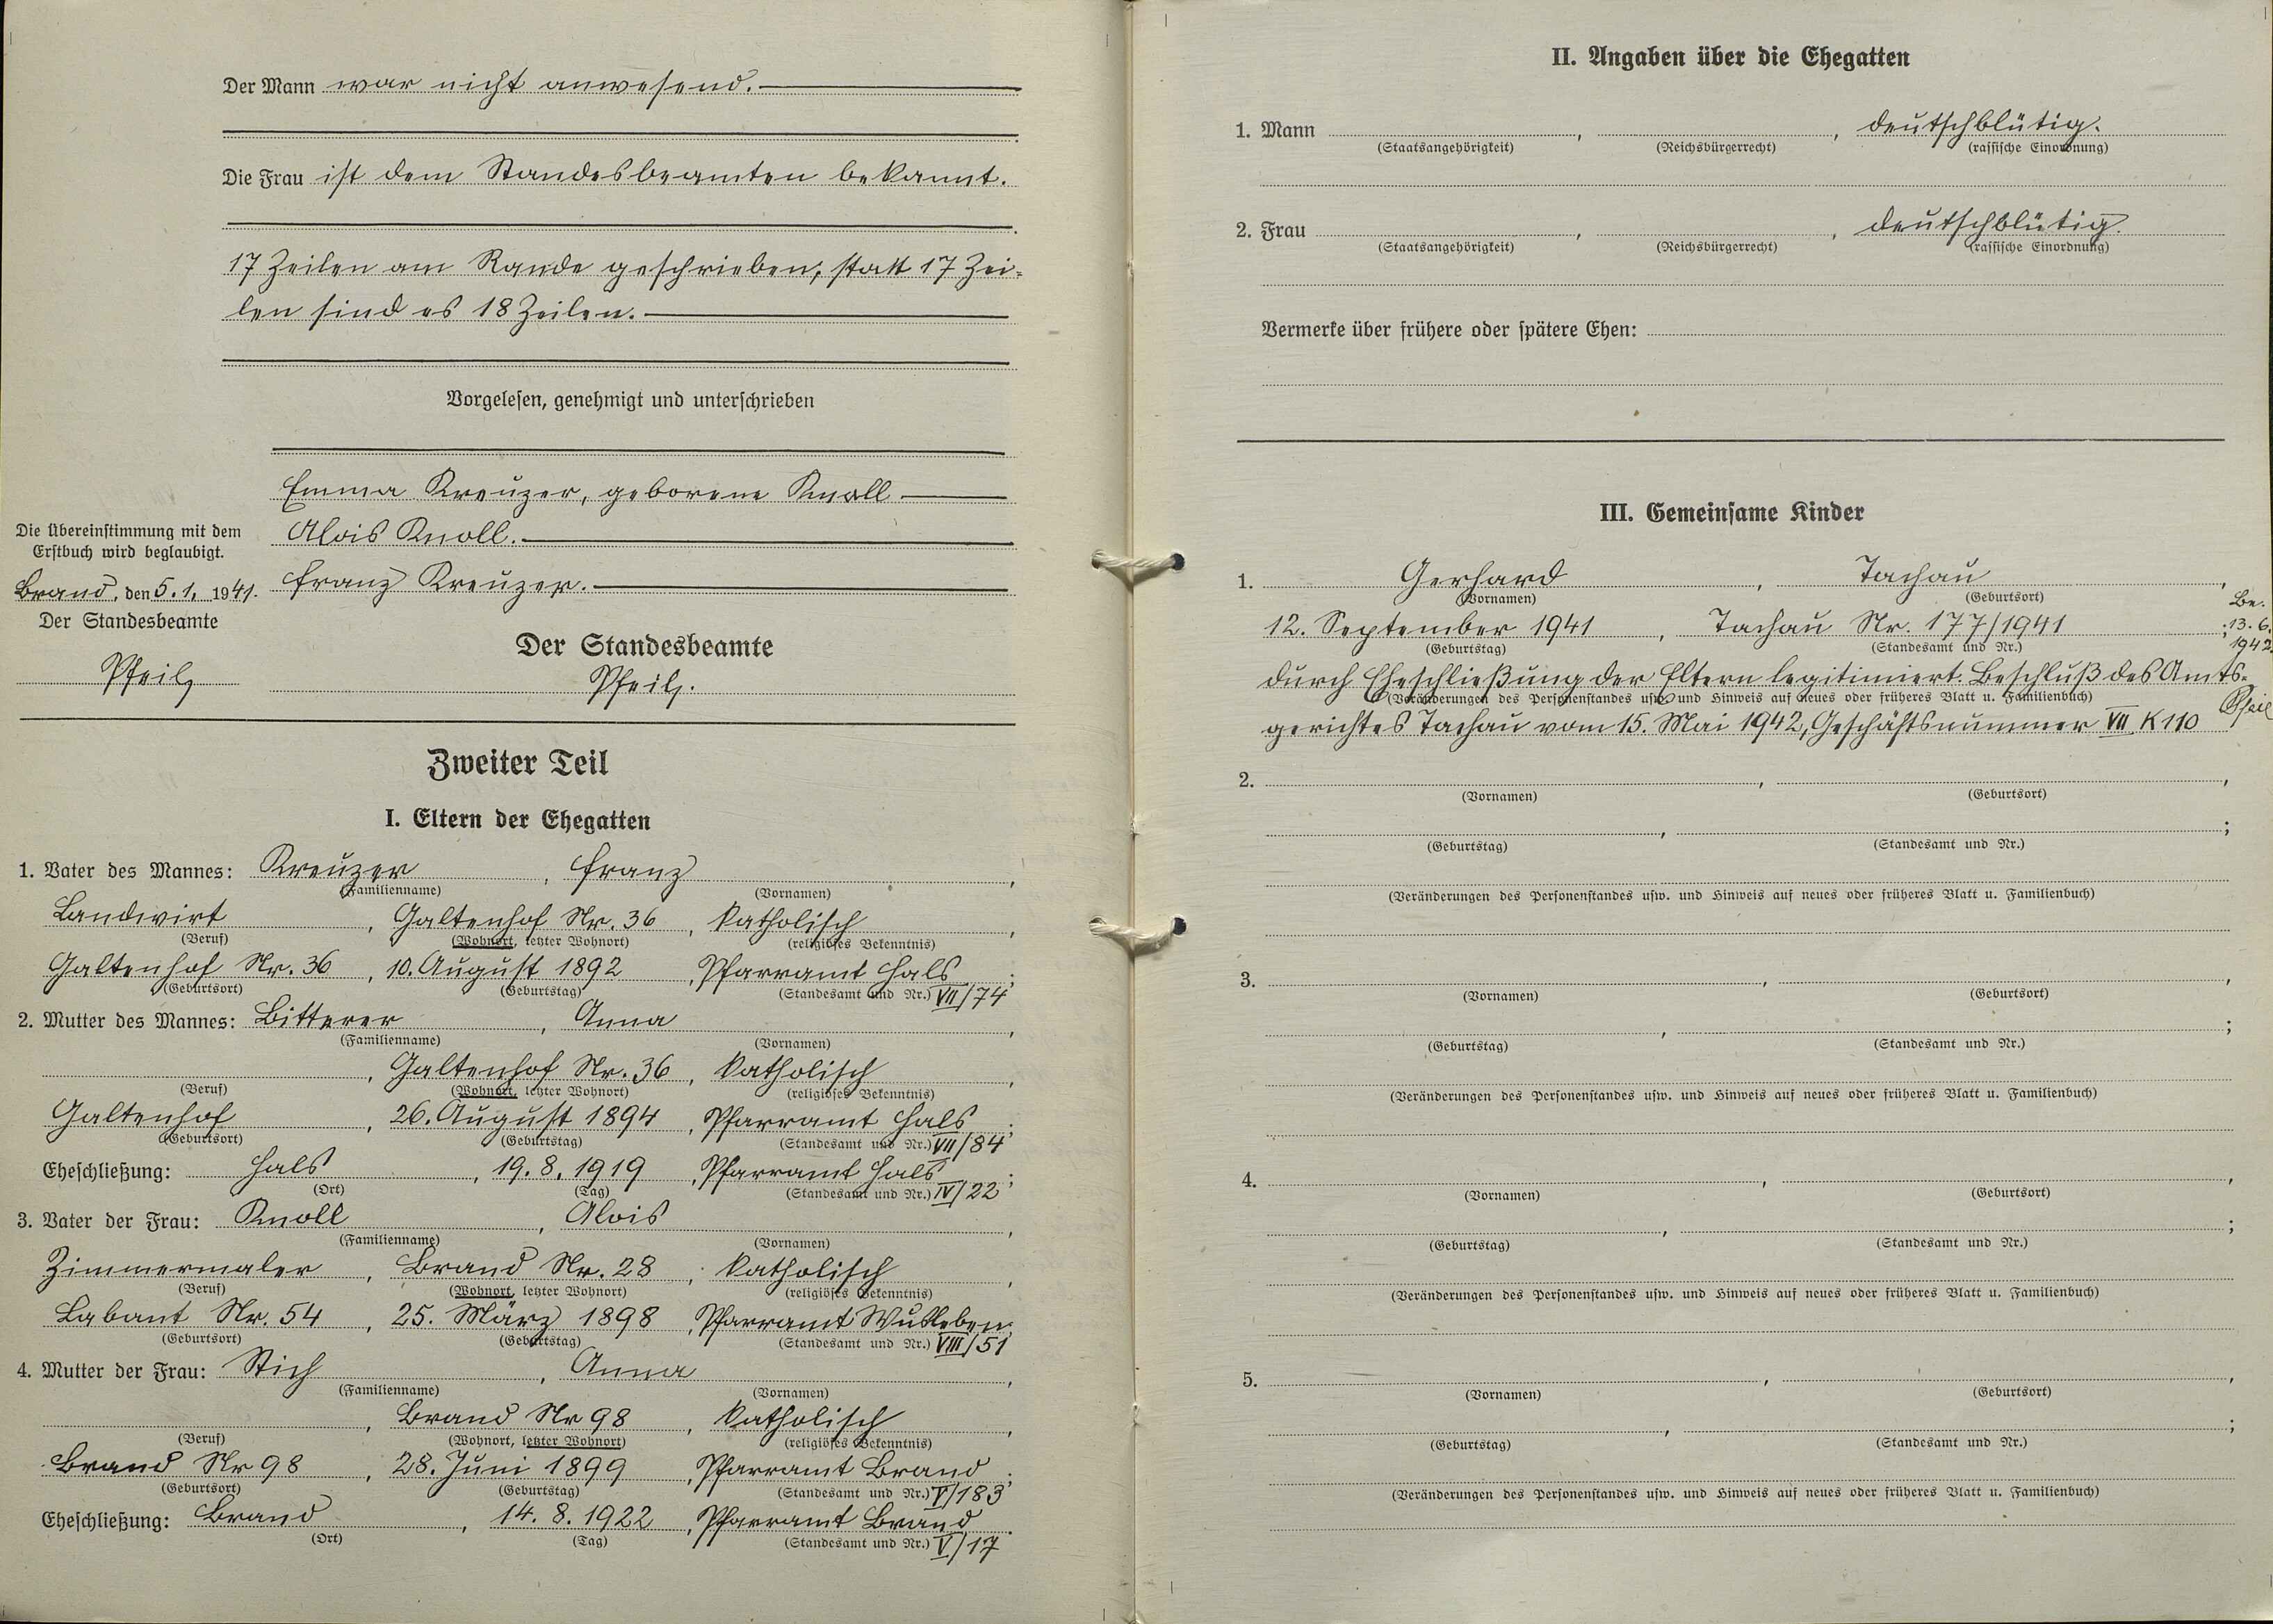 Der Mann war nicht anwesend.
Die Frau ist dem Standesbeamten bekannt.
17 Zeilen am Rande geschrieben, statt 17 Zei-
len sind es 18 Zeilen.
Vorgelesen, genehmigt und unterschrieben
Emma Kreuzer, geborene Knoll
Alois Knoll.
Franz Kreuzer.
Die Übereinstimmung mit dem
Erstbuch wird beglaubigt.
Brand, den 5. 1. 1941.
Der Standesbeamte
Pfeilz
Der Standesbeamte
Pfeilz.
Zweiter Teil
I. Eltern der Ehegatten
1. Vater des Mannes: Kreuzer, Franz,
(Familienname) (Vornamen)
Landwirt, Galtenhof Nr. 36, katholisch,
(Beruf) (Wohnort, letzter Wohnort) (religiöses Bekenntnis)
Galtenhof Nr. 36, 10. August 1892, Pfarramt Hals;
(Geburtsort) (Geburtstag) (Standesamt und Nr.) VII/74
2. Mutter des Mannes: Bitterer, Anna,
(Familienname) (Vornamen)
, Galtenhof Nr. 36, katholisch,
(Beruf) (Wohnort, letzter Wohnort) (religiöses Bekenntnis)
Galtenhof, 26. August 1894, Pfarramt Hals;
(Geburtsort) (Geburtstag) (Standesamt und Nr.) VII/84
Eheschließung: Hals, 19. 8. 1919, Pfarramt Hals;
(Ort) (Tag) (Standesamt und Nr.) IV/22
3. Vater der Frau: Knoll, Alois,
(Familienname) (Vornamen)
Zimmermaler, Brand Nr. 28, katholisch,
(Beruf) (Wohnort, letzter Wohnort) (religiöses Bekenntnis)
Labant Nr. 54, 25. März 1898, Pfarramt Wusleben;
(Geburtsort) (Geburtstag) (Standesamt und Nr.) VIII/51
4. Mutter der Frau: Stich, Anna,
(Familienname) (Vornamen)
, Brand Nr 98, katholisch,
(Beruf) (Wohnort, letzter Wohnort) (religiöses Bekenntnis)
Brand Nr 98, 28. Juni 1899, Pfarramt Brand;
(Geburtsort) (Geburtstag) (Standesamt und Nr.) V/183
Eheschließung: Brand, 14. 8. 1922, Pfarramt Brand.
(Ort) (Tag) (Standesamt und Nr.) V/17
II. Angaben über die Ehegatten
1. Mann , , deutschblütig.
(Staatsangehörigkeit) (Reichsbürgerrecht) (rassische Einordnung)
2. Frau , , deutschblütig.
(Staatsangehörigkeit) (Reichsbürgerrecht) (rassische Einordnung)
Vermerke über frühere oder spätere Ehen:
III. Gemeinsame Kinder
1. Gerhard, Tachau,
(Vornamen) (Geburtsort)
12. September 1941, Tachau Nr. 177/1941;
(Geburtstag) (Standesamt und Nr.)
Be.
13. 6.
1942.
durch Eheschließung der Eltern legitimiert. Beschluß des Amts-
(Veränderungen des Personenstandes usw. und Hinweis auf neues oder früheres Blatt u. Familienbuch)
gerichtes Tachau vom 15. Mai 1942, Geschäftsnummer VII K 110
2. , ,
(Vornamen) (Geburtsort)
, ;
(Geburtstag) (Standesamt und Nr.)
(Veränderungen des Personenstandes usw. und Hinweis auf neues oder früheres Blatt u. Familienbuch)
3. , ,
(Vornamen) (Geburtsort)
, ;
(Geburtstag) (Standesamt und Nr.)
(Veränderungen des Personenstandes usw. und Hinweis auf neues oder früheres Blatt u. Familienbuch)
4. , ,
(Vornamen) (Geburtsort)
, ;
(Geburtstag) (Standesamt und Nr.)
(Veränderungen des Personenstandes usw. und Hinweis auf neues oder früheres Blatt u. Familienbuch)
5. , ,
(Vornamen) (Geburtsort)
, ;
(Geburtstag) (Standesamt und Nr.)
(Veränderungen des Personenstandes usw. und Hinweis auf neues oder früheres Blatt u. Familienbuch)